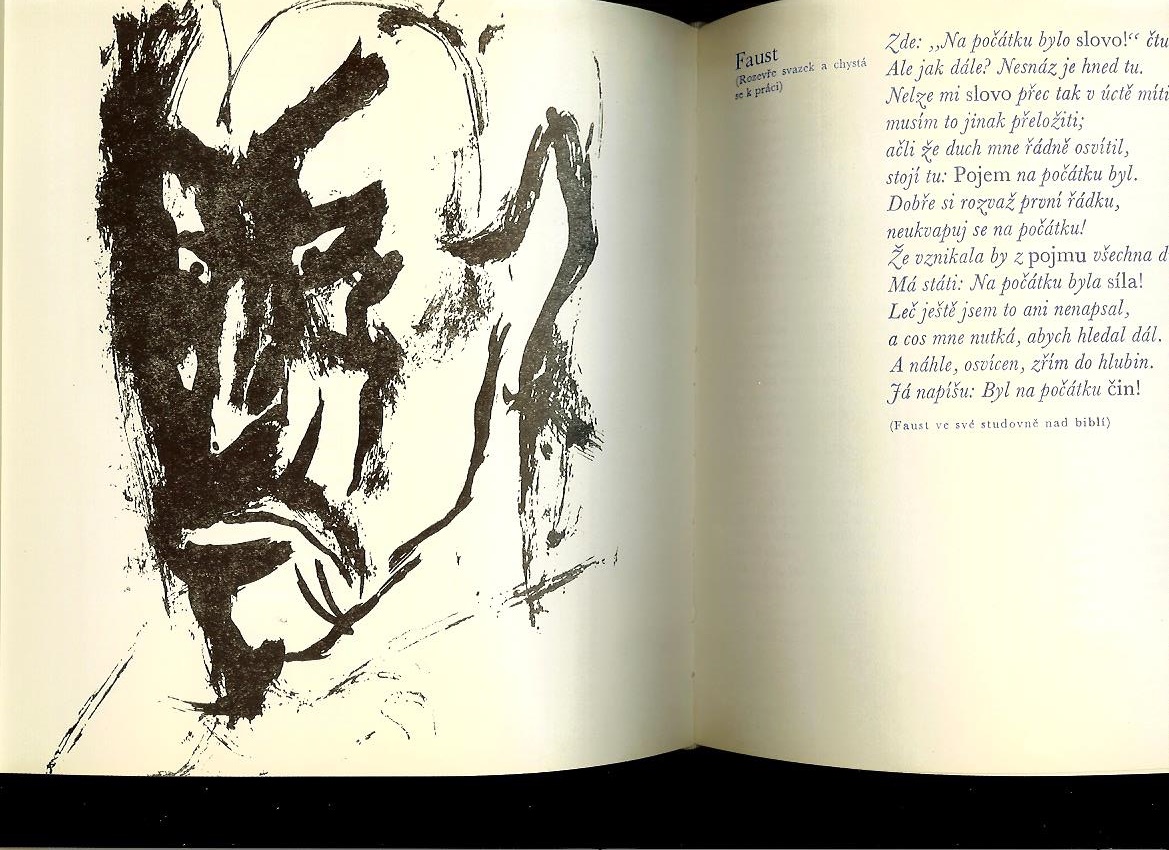 Faust
(Rozevře svazek a chystá
se k práci)
Zde: „Na počátku bylo slovo!“ čtu
Ale jak dále? Nesnáz je hned tu.
Nelze mi slovo přec tak v úctě míti
musím to jinak přeložiti;
ačli že duch mne řádně osvítil,
stojí tu: Pojem na počátku byl.
Dobře si rozvaž první řádku,
neukvapuj se na počátku!
Že vznikala by z pojmu všechna
Má státi: Na počátku byla síla!
Leč ještě jsem to ani nenapsal,
a cos mne nutká, abych hledal dál.
A náhle, osvícen, zřím do hlubin.
Já napíšu: Byl na počátku čin!
(Faust ve své studovně nad biblí)